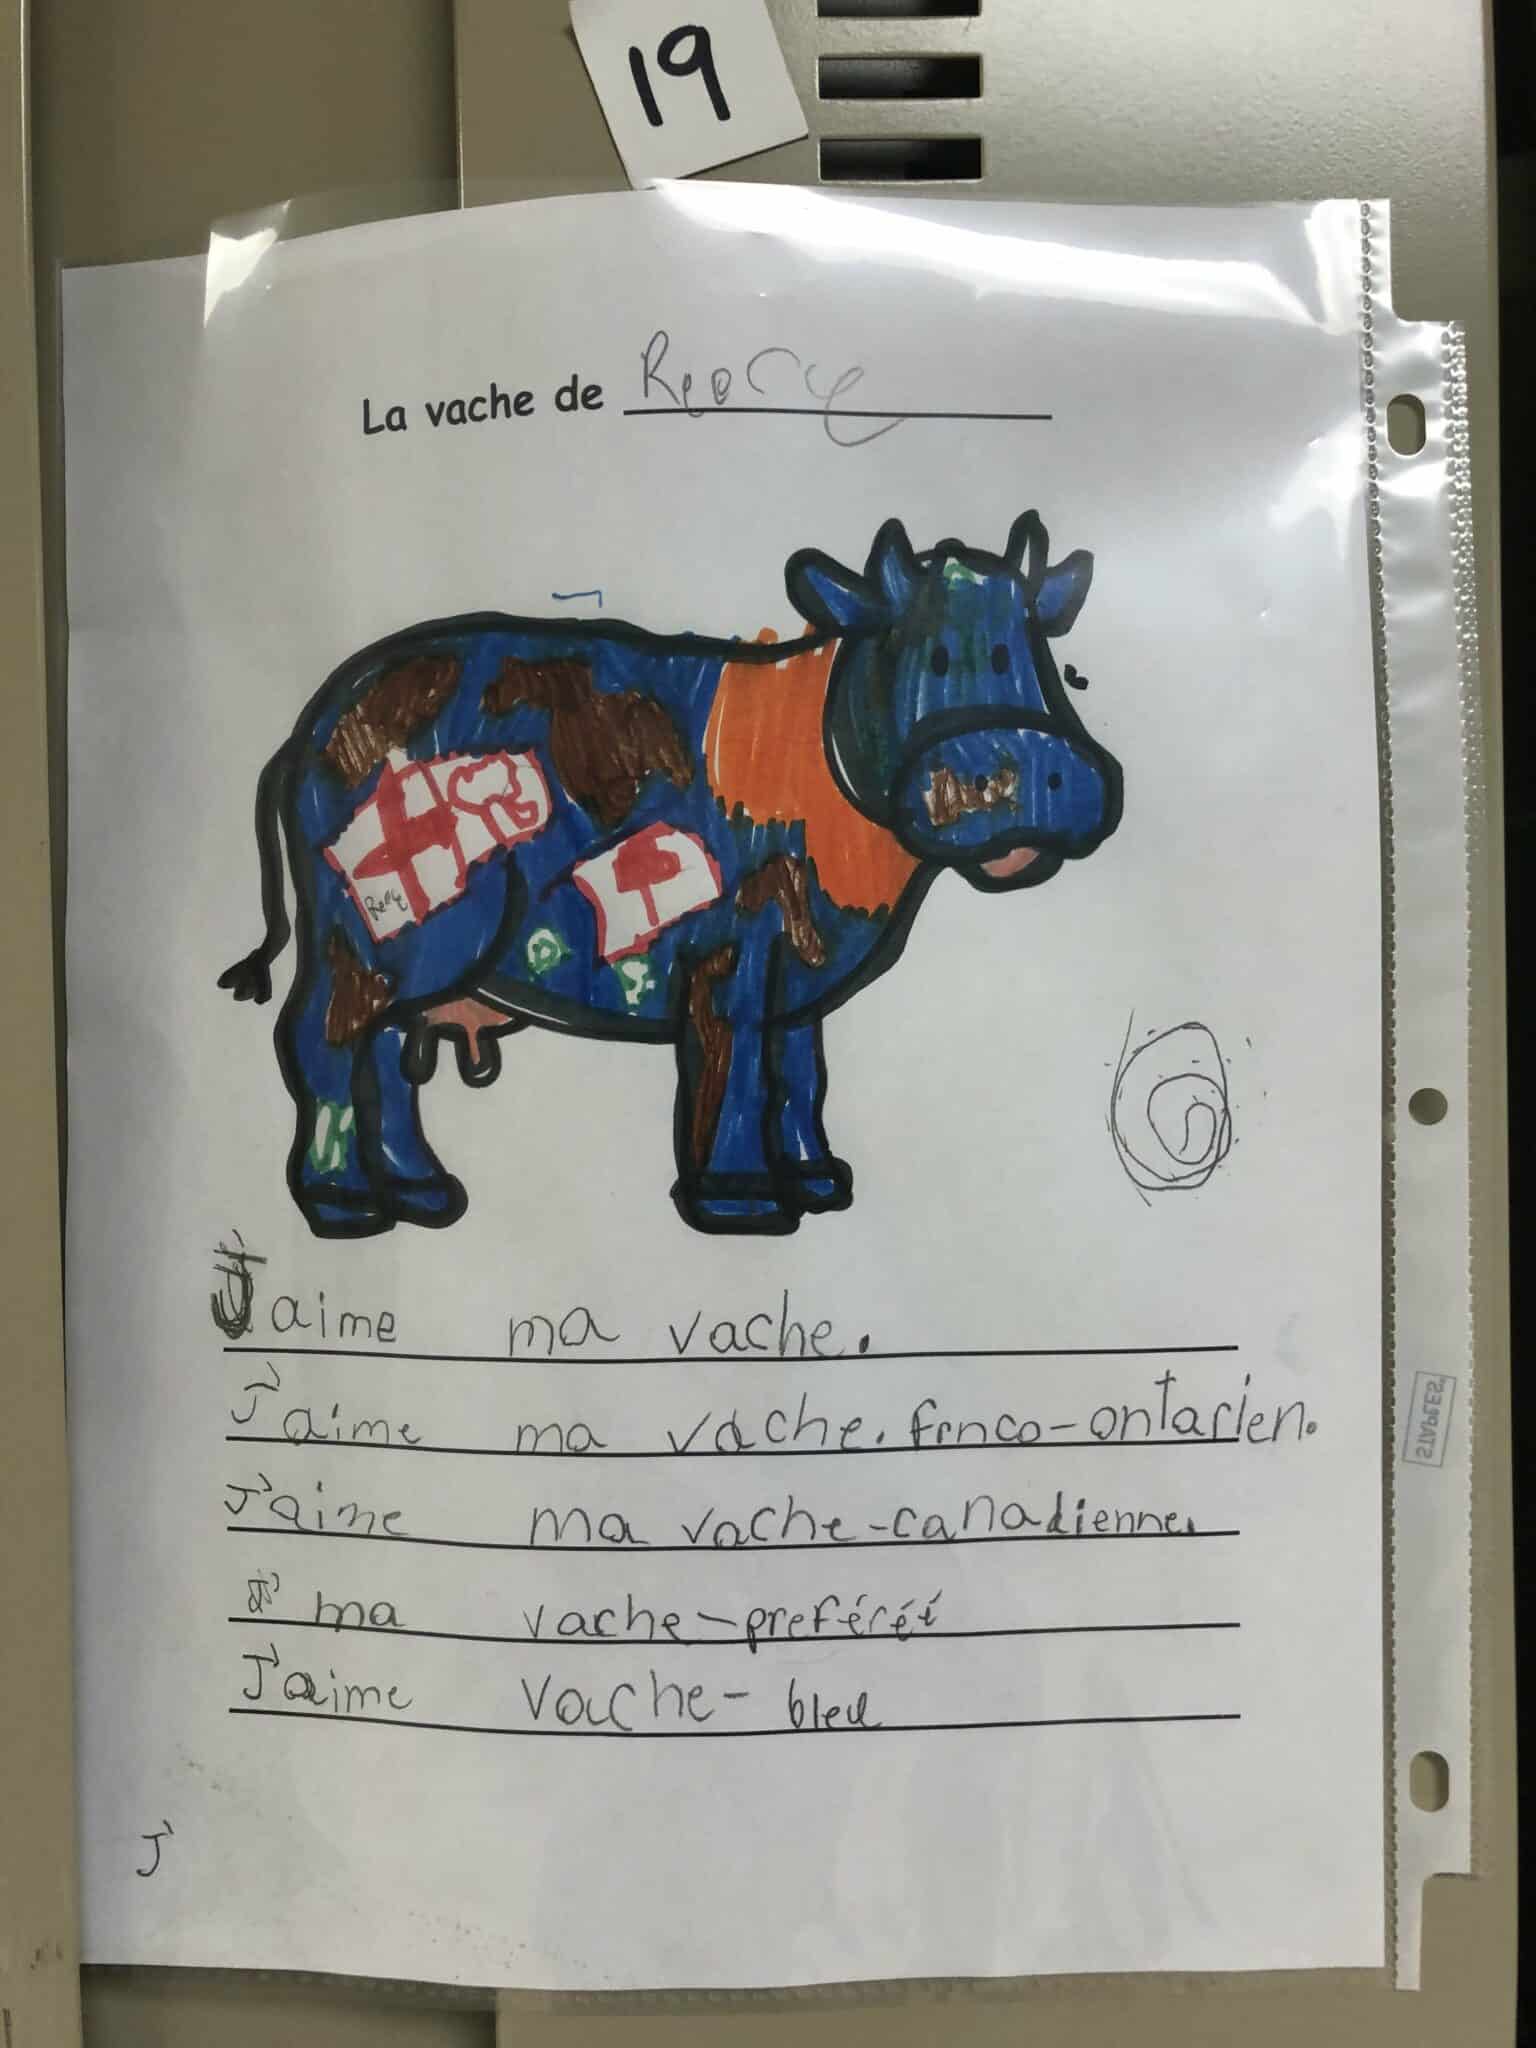 19
La vache de
J'aime ma vache.
J'aime ma vache. frnco-ontarien.
J'aime ma vache-canadienne.
J' ma vache-preféréé
J'aime vache- bleu
J'
STAPLES